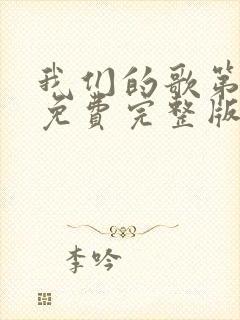 我们的歌第
免费完整版
李吟